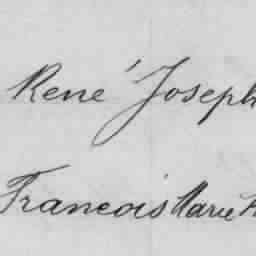 René Joseph
Francois Marie